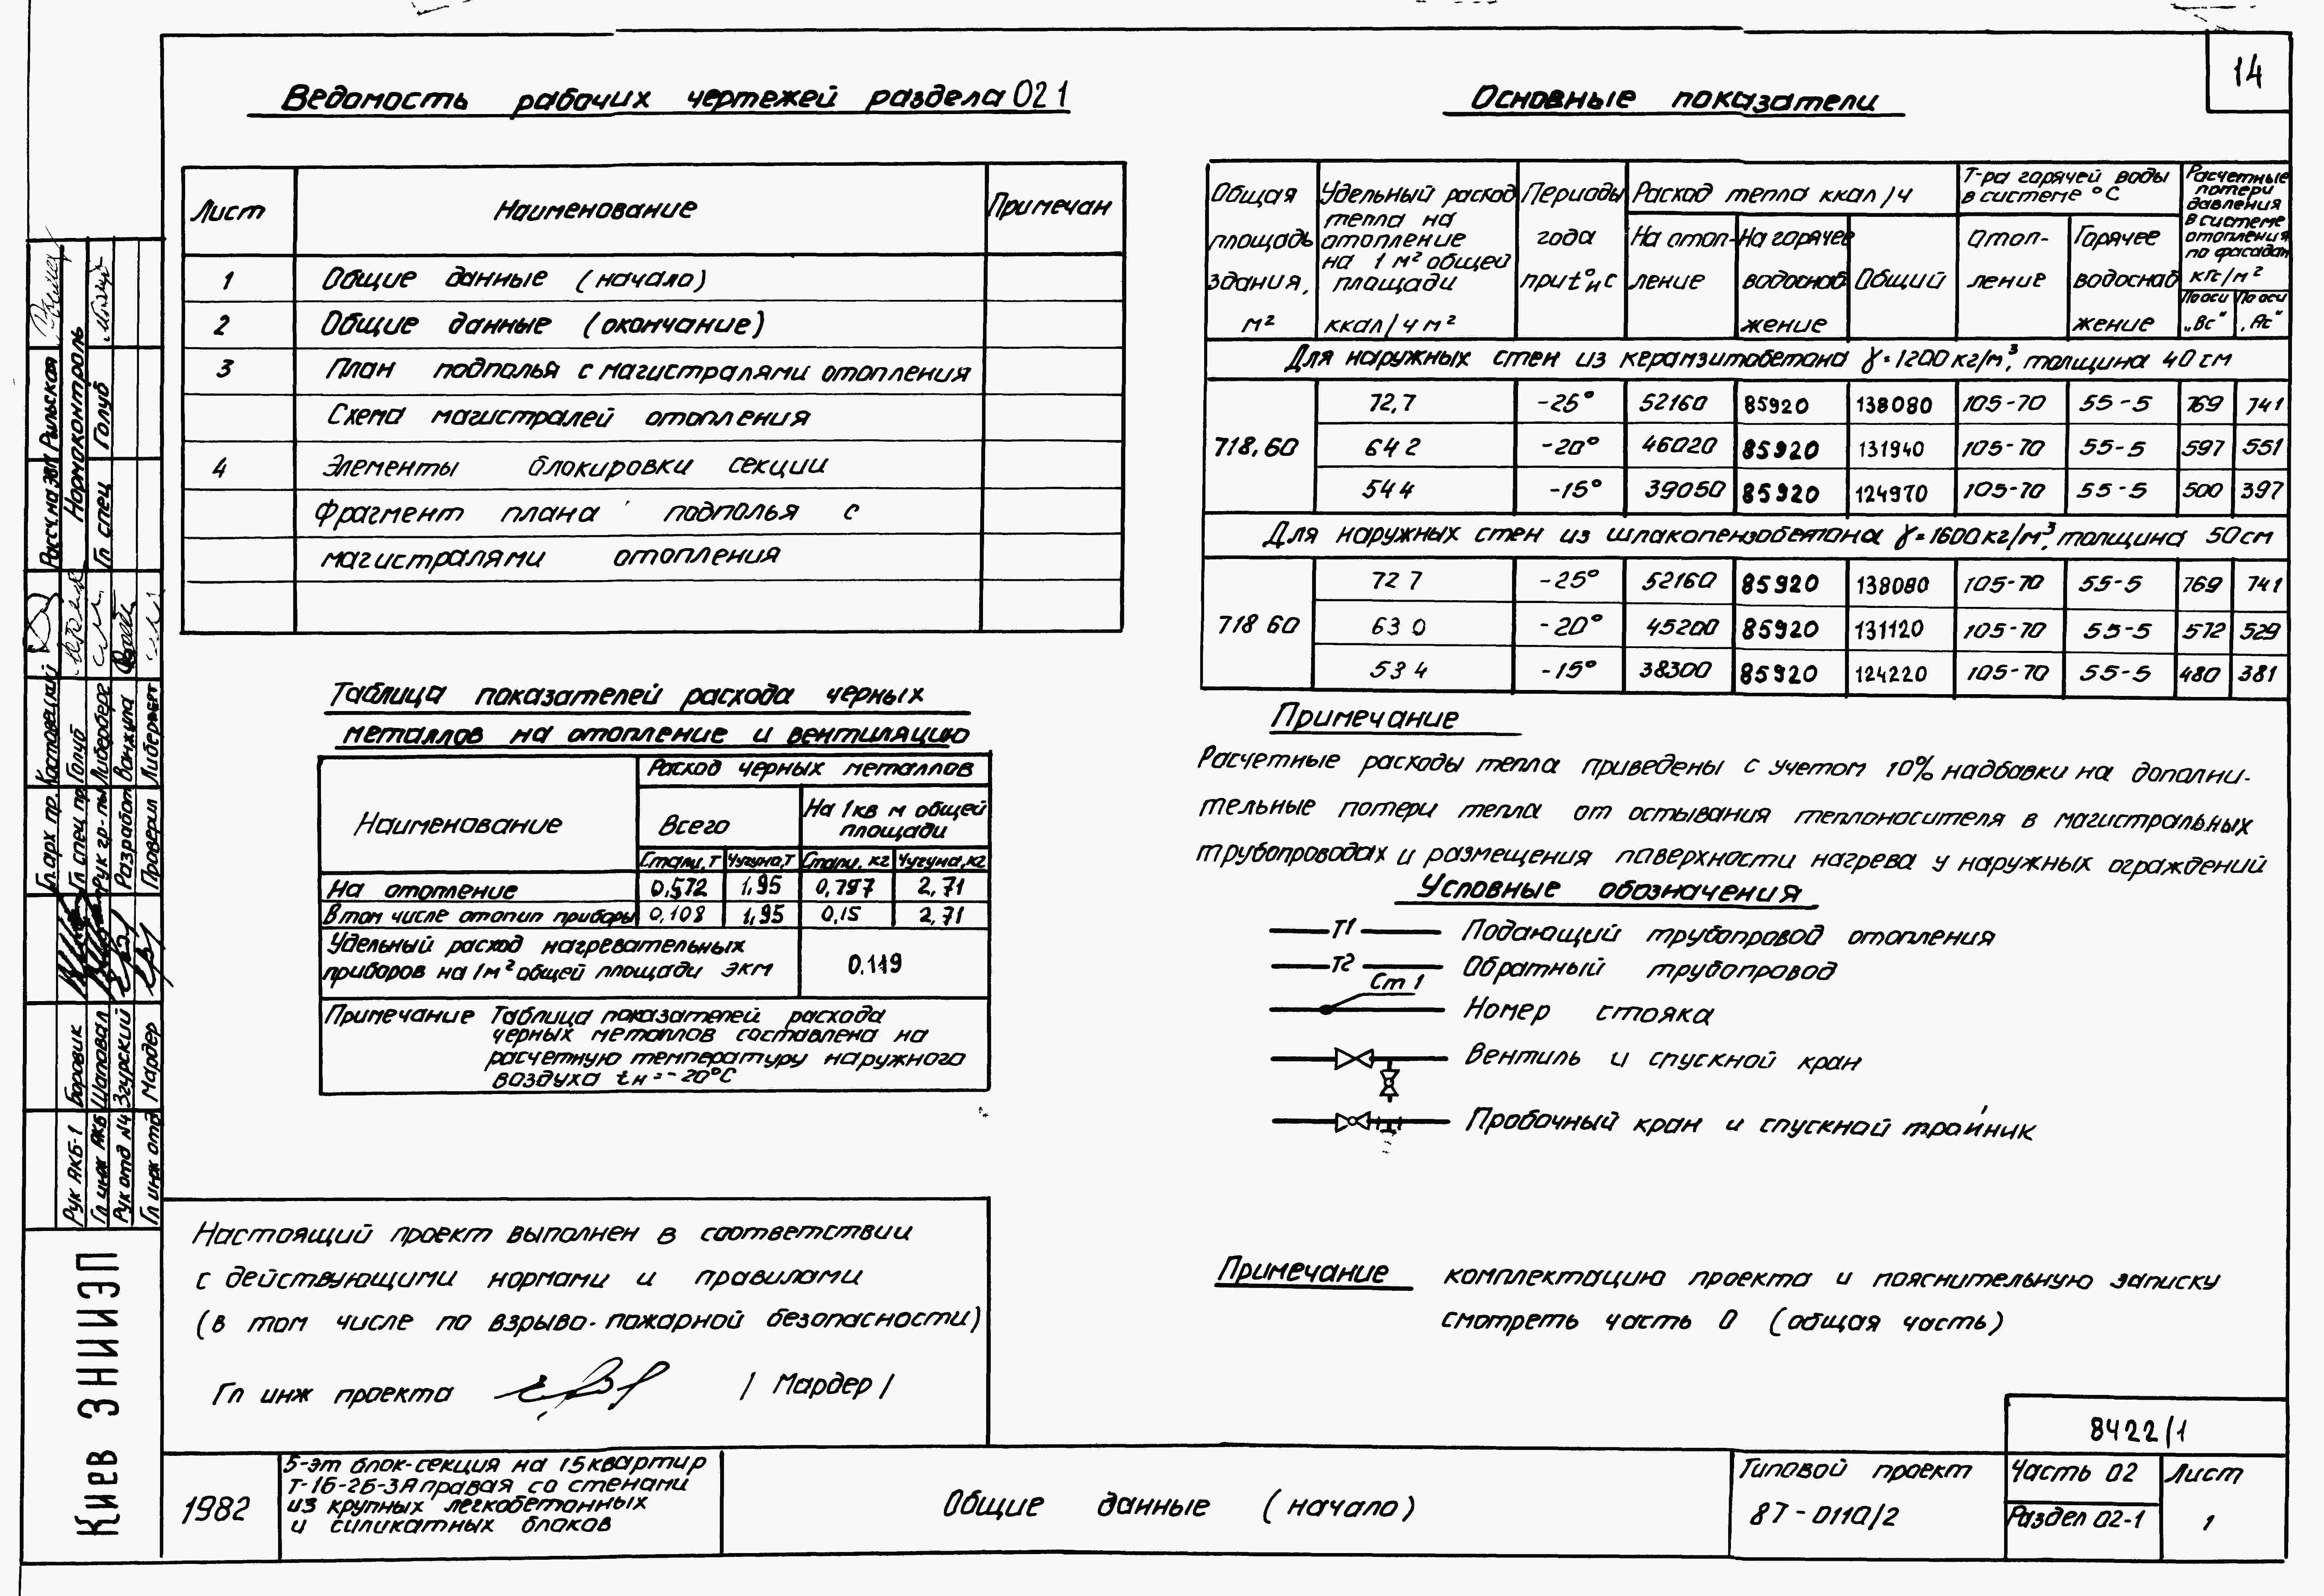 14
Ведомость рабочих чертежей раздела 02 1
Лист Наименование Примечан
1 Общие данные (начало)
2 Общие данные (окончание)
3 План подполья с магистралями отопления
Схема магистралей отопления
4 Элементы блокировки секции
Фрагмент плана подполья с
магистралями отопления
Таблица показателей расхода черных
металлов на отопление и вентиляцию
Наименование Расход черных металлов
Всего На 1кв м общей площади
Стали, т Чугуна, т Стали, кг Чугуна, кг
На отопление 0,572 1,95 0,797 2,71
В том числе отопит приборы 0,108 1,95 0,15 2,71
Удельный расход нагревательных
приборов на 1м² общей площади экм 0.119
Примечание Таблица показателей расхода
черных металлов составлена на
расчетную температуру наружного
воздуха tн = -20°С
Настоящий проект выполнен в соответствии
с действующими нормами и правилами
(в том числе по взрыво-пожарной безопасности)
Гл инж проекта / Мардер /
Основные показатели
Общая площадь здания, м²
Удельный расход тепла на отопление на 1 м² общей площади ккал/ч м²
Периоды года при t°н с
Расход тепла ккал/ч
На отопление
На горячее водоснабжение
Общий
Т-ра горячей воды в системе °С
Отопление
Горячее водоснабжение
Расчетные потери давления в системе отопления по фасадам кгс/м²
По оси „Вс“ По оси „Ас“
Для наружных стен из керамзитобетона γ=1200кг/м³, толщина 40 см
718.60 72,7 -25° 52160 85920 138080 105-70 55-5 769 741
64 2 -20° 46020 85920 131940 105-70 55-5 597 551
54 4 -15° 39050 85920 124970 105-70 55-5 500 397
Для наружных стен из шлакопензобетона γ=1600кг/м³, толщина 50см
718 60 72 7 -25° 52160 85920 138080 105-70 55-5 769 741
63 0 -20° 45200 85920 131120 105-70 55-5 572 529
53 4 -15° 38300 85920 124220 105-70 55-5 480 381
Примечание
Расчетные расходы тепла приведены с учетом 10% надбавки на дополни-
тельные потери тепла от остывания теплоносителя в магистральных
трубопроводах и размещения поверхности нагрева у наружных ограждений
Условные обозначения
Т1 Подающий трубопровод отопления
Т2 Обратный трубопровод
Ст 1 Номер стояка
Вентиль и спускной кран
Пробочный кран и спускной тройник
Примечание комплектацию проекта и пояснительную записку
смотреть часть 0 (общая часть)
Рассч. на ЭВМ Рыльская
Нормоконтроль
Гл спец Голуб
Гл. арх пр.
Гл спец пр Голуб
Рук гр-пы Либерберг
Разработ Ванжула
Проверил Либерберг
Рук АКБ-1 Боровик
Гл инж АКБ Шаповал
Рук отд N4 Згурский
Гл инж отд Мардер
Киев ЗНИИЭП
1982
5-эт блок-секция на 15 квартир
Т-1Б-2Б-3А правая со стенами
из крупных легкобетонных
и силикатных блоков
Общие данные (начало)
Типовой проект
87-0110/2
8422/1
Часть 02
Раздел 02-1
Лист
1